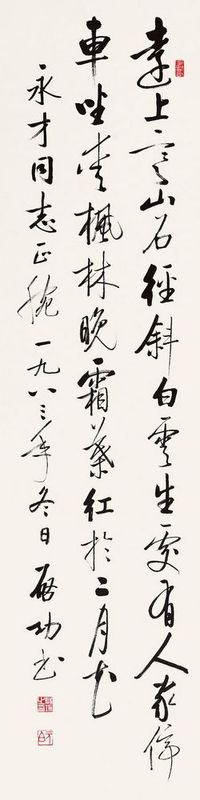 遠上寒山石徑斜白雲生處有人家停
車坐愛楓林晚霜葉紅於二月花
永才同志正腕一九八三年冬日啓功書